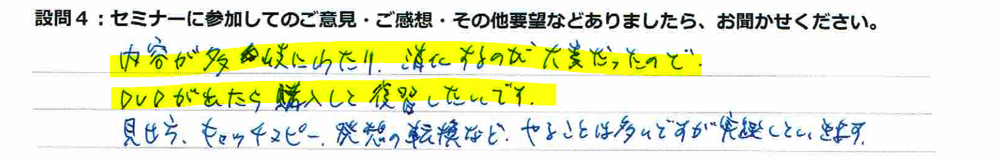 設問４：セミナーに参加してのご意見・ご感想・その他要望などありましたら、お聞かせください。
内容が多岐にわたり、消化するのが大変だったので、
DVDが出たら購入して復習したいです。
見せ方、キャッチコピー、発想の転換など、やることは多いですが実践していきます。